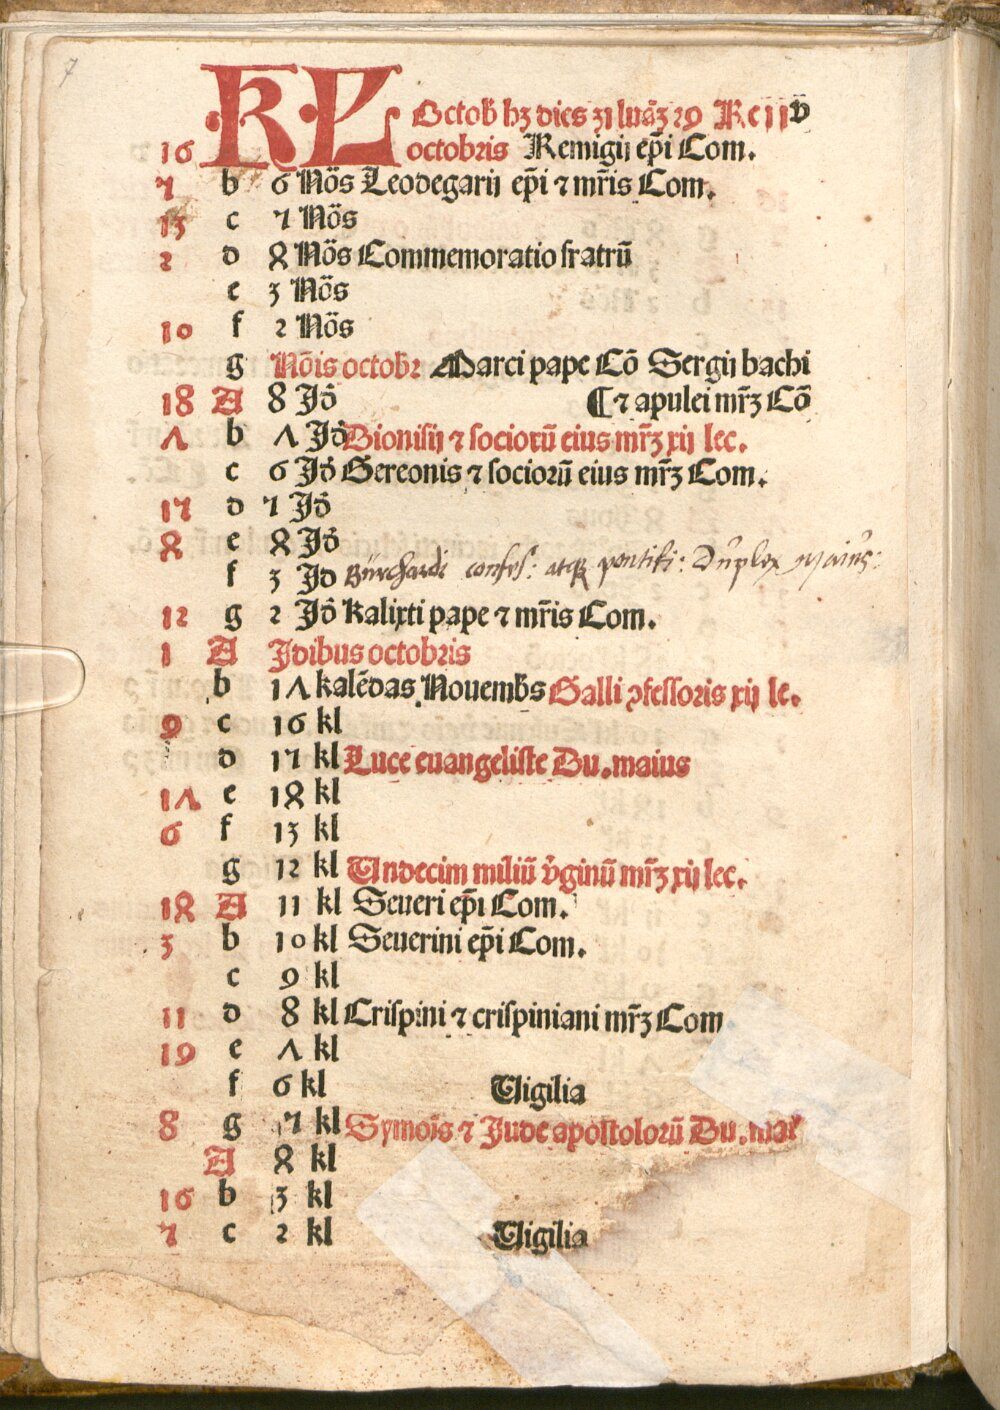 7
KL Octob hȝ dies 31 luãȝ 29
16 octobris Remigij ep̃i Com.
7 b 6 Nõs Leodegarij ep̃i ⁊ mr̃is Com.
15 c 5 Nõs
2 d 4 Nõs Commemoratio fratrũ
e 3 Nõs
10 f 2 Nõs
g Nõis octobr Marci pape Cõ Sergij bachi
18 A 8 Jd̃ ¶ ⁊ apulei mr̃ȝ Cõ
7 b 7 Jd̃ Dionisij ⁊ sociorũ eius mr̃ȝ xij lec.
c 6 Jd̃ Gereonis ⁊ sociorũ eius mr̃ȝ Com.
15 d 5 Jd̃
4 e 4 Jd̃
f 3 Jd Burchardi confes: atque pontifi: Duplex Maius:
12 g 2 Jd̃ Kalixti pape ⁊ mr̃is Com.
1 A Jdibus octobris
b 17 kalẽdas Nouemb̃s Galli ꝯfessoris xij le.
9 c 16 kl
d 15 kl Luce euangeliste Du. maius
17 e 14 kl
6 f 13 kl
g 12 kl Undecim miliũ v̓ginũ mr̃ȝ xij lec.
14 A 11 kl Seueri ep̃i Com.
3 b 10 kl Seuerini ep̃i Com.
c 9 kl
11 d 8 kl Crispini ⁊ crispiniani mr̃ȝ Com
19 e 7 kl
f 6 kl Uigilia
8 g 5 kl Symõis ⁊ Jude apostolorũ Du. mai
A 4 kl
16 b 3 kl
5 c 2 kl Uigilia